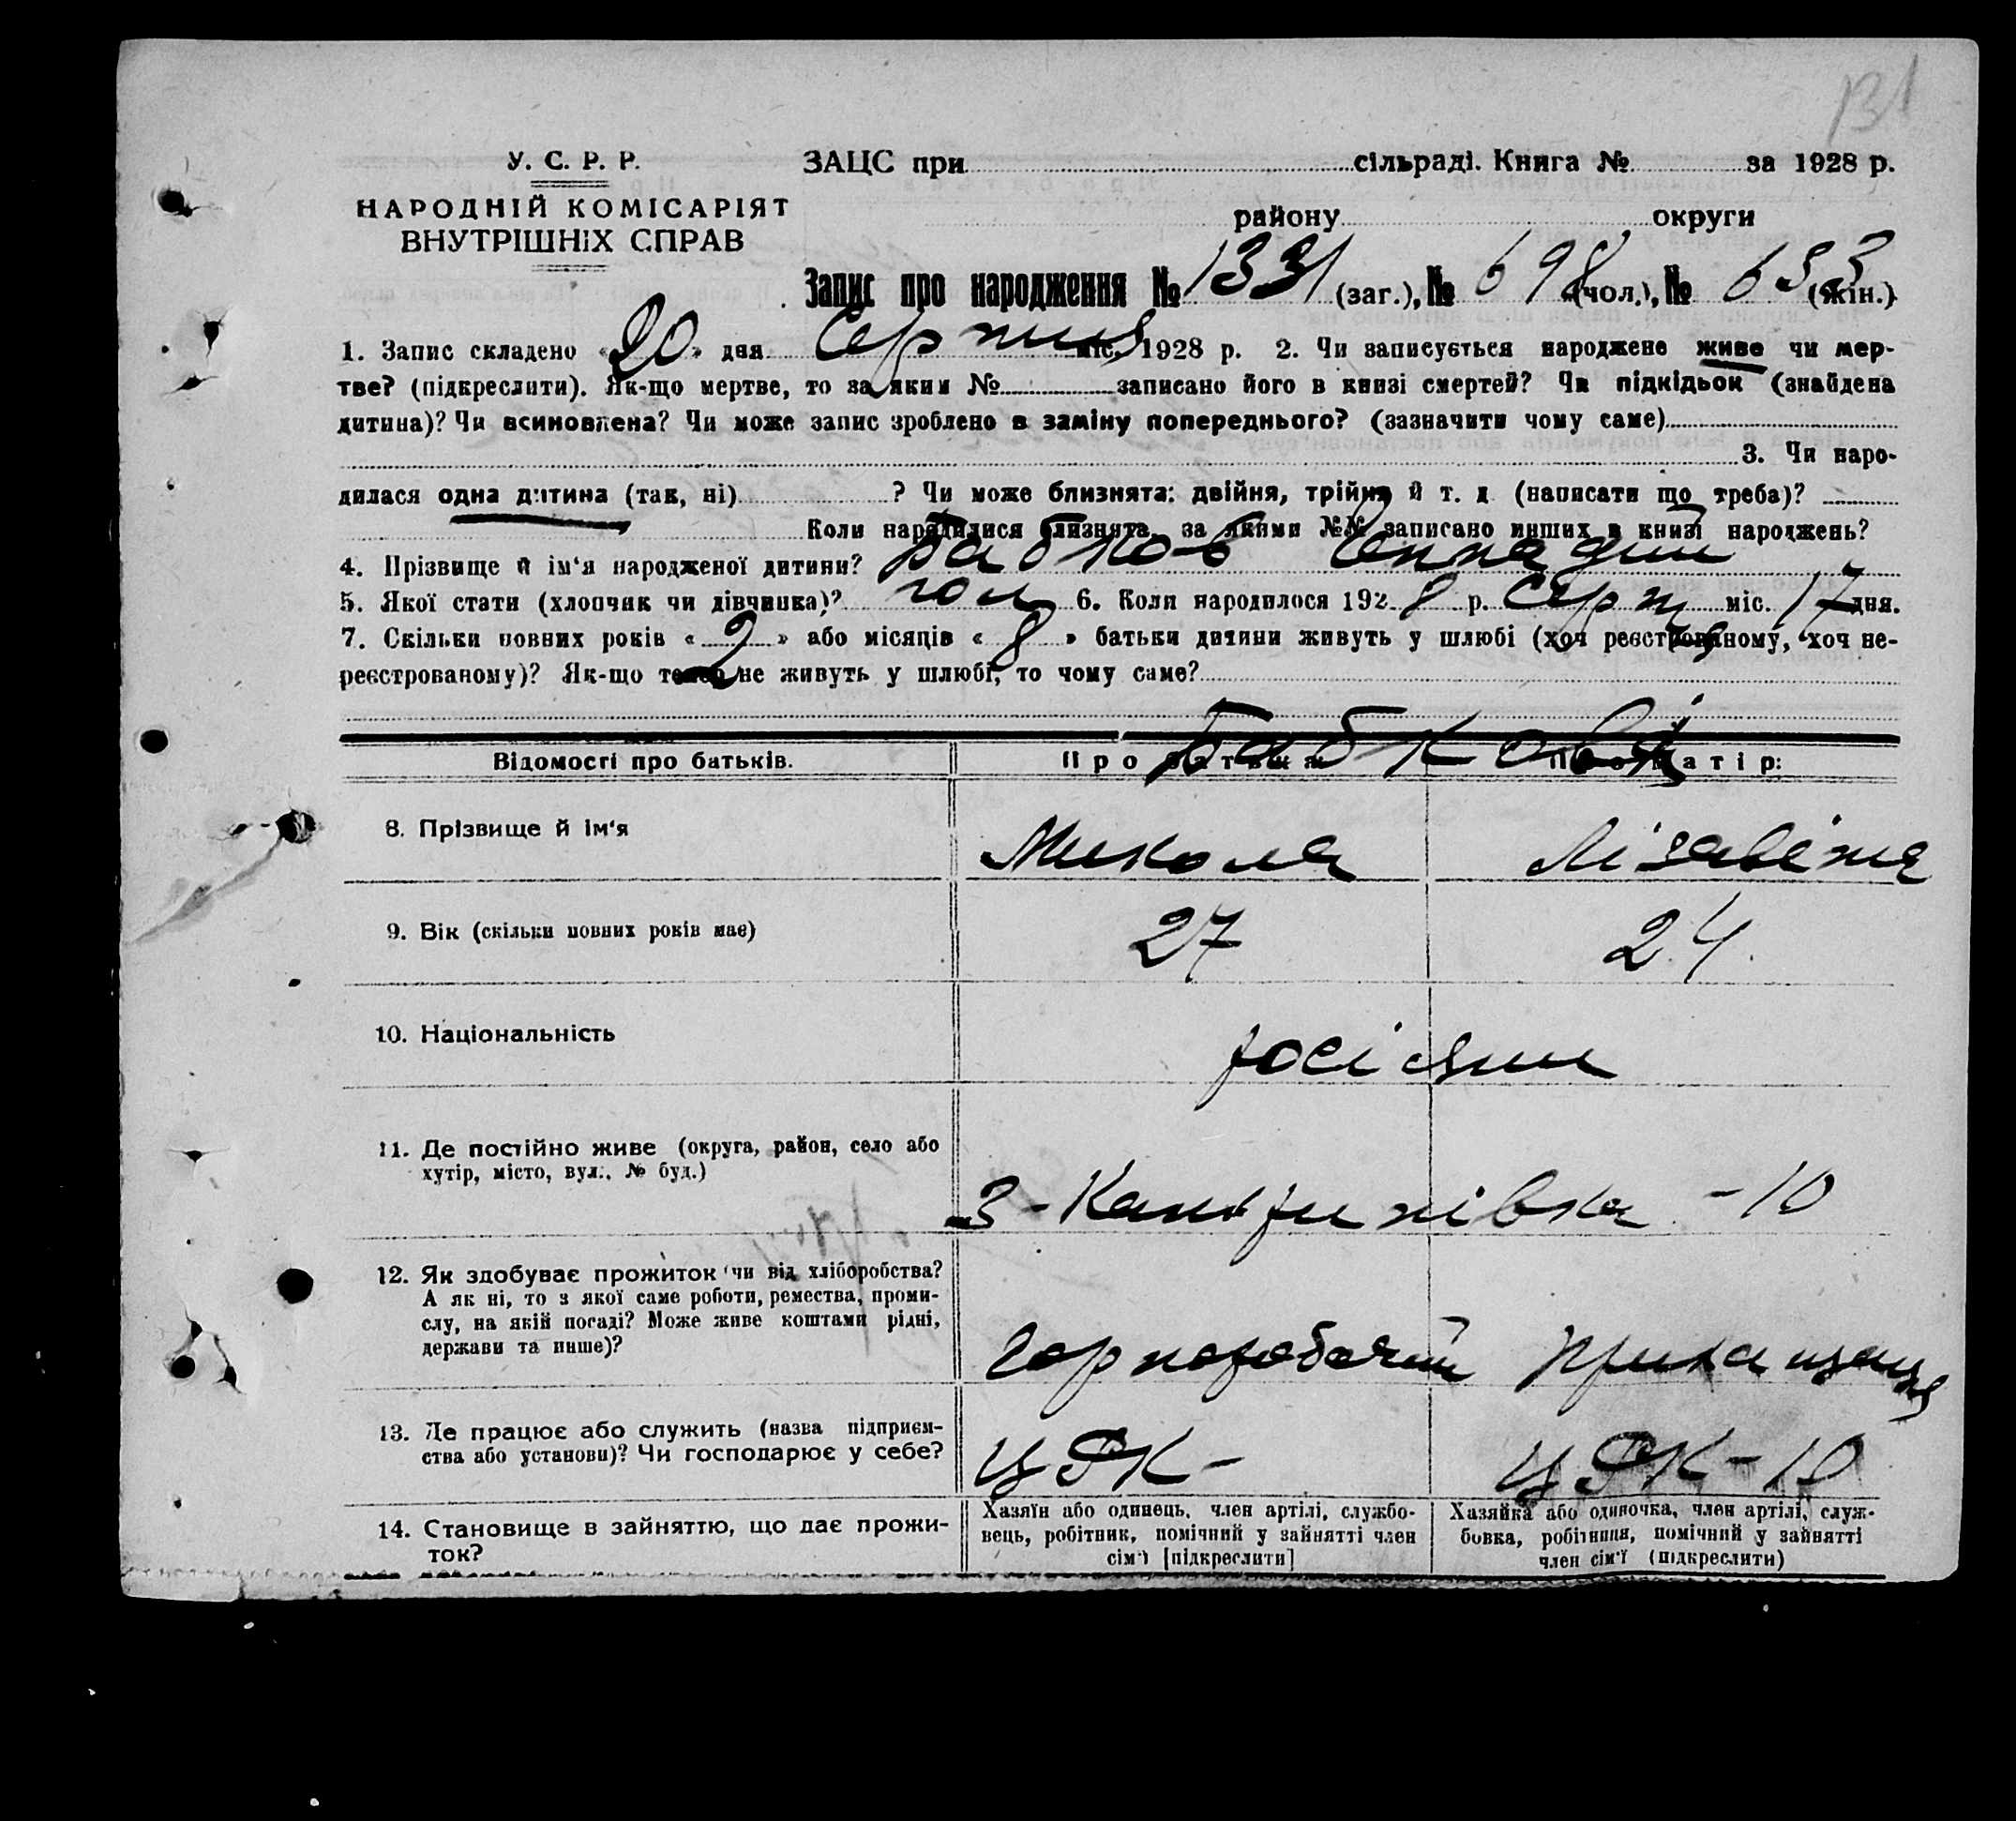 131
У. С. Р. Р.
НАРОДНІЙ КОМІСАРІЯТ
ВНУТРІШНІХ СПРАВ
ЗАЦС при сільраді. Книга № за 1928 р.
району округи
Запис про народження № 1331 (заг.), № 698 (чол.), № 633 (жін.)
1. Запис складено « 20 » дня Серпня міс. 1928 р. 2. Чи записується народжене живе чи мер-
тве? (підкреслити). Як-що мертве, то за яким № записано його в книзі смертей? Чи підкідьок (знайдена
дитина)? Чи всиновлена? Чи може запис зроблено в заміну попереднього? (зазначити чому саме)
3. Чи наро-
дилася одна дитина (так, ні) ? Чи може близнята: двійня, трійня й т. д (написати що треба)?
Коли народилися близнята, за якими №№ записано инших в книзі народжень?
4. Прізвище й ім'я народженої дитини? Бабков Геннадий
5. Якої стати (хлопчик чи дівчинка)? чол 6. Коли народилося 192 8 р. Серпня міс. 17 дня.
7. Скільки повних років « 2 » або місяців « 8 » батьки дитини живуть у шлюбі (хоч реєстрованому, хоч не-
реєстрованому)? Як-що тепер не живуть у шлюбі, то чому саме?
Бабкові
Відомості про батьків. Про батька Про матір:
8. Прізвище й ім'я Микола Лізавета
9. Вік (скільки повних років має) 27 24
10. Національність росіяни
11. Де постійно живе (округа, район, село або
хутір, місто, вул., № буд.) 3 - Кантринівка - 10
12. Як здобуває прожиток чи від хліборобства?
А як ні, то з якої саме роботи, ремества, проми-
слу, на якій посаді? Може живе коштами рідні,
держави та инше)? чорноробочий Прика
13. Де працює або служить (назва підприєм-
ства або установи)? Чи господарює у себе? ЦРК - ЦРК - 10
14. Становище в зайняттю, що дає прожи-
ток?
Хазяїн або одинець, член артілі, службо-
вець, робітник, помічний у зайнятті член
сім'ї [підкреслити]
Хазяйка або одиночка, член артілі, служ-
бовка, робітниця, помічний у зайнятті
член сім'ї (підкреслити)